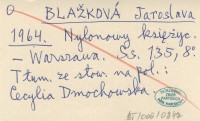 BLAŽKOVÁ Jaroslava
1964. Nylonowy księżyc.
– Warszawa. Ss. 135, 8°
Tłum. ze słow. na pol.:
Cecylia Dmochowska